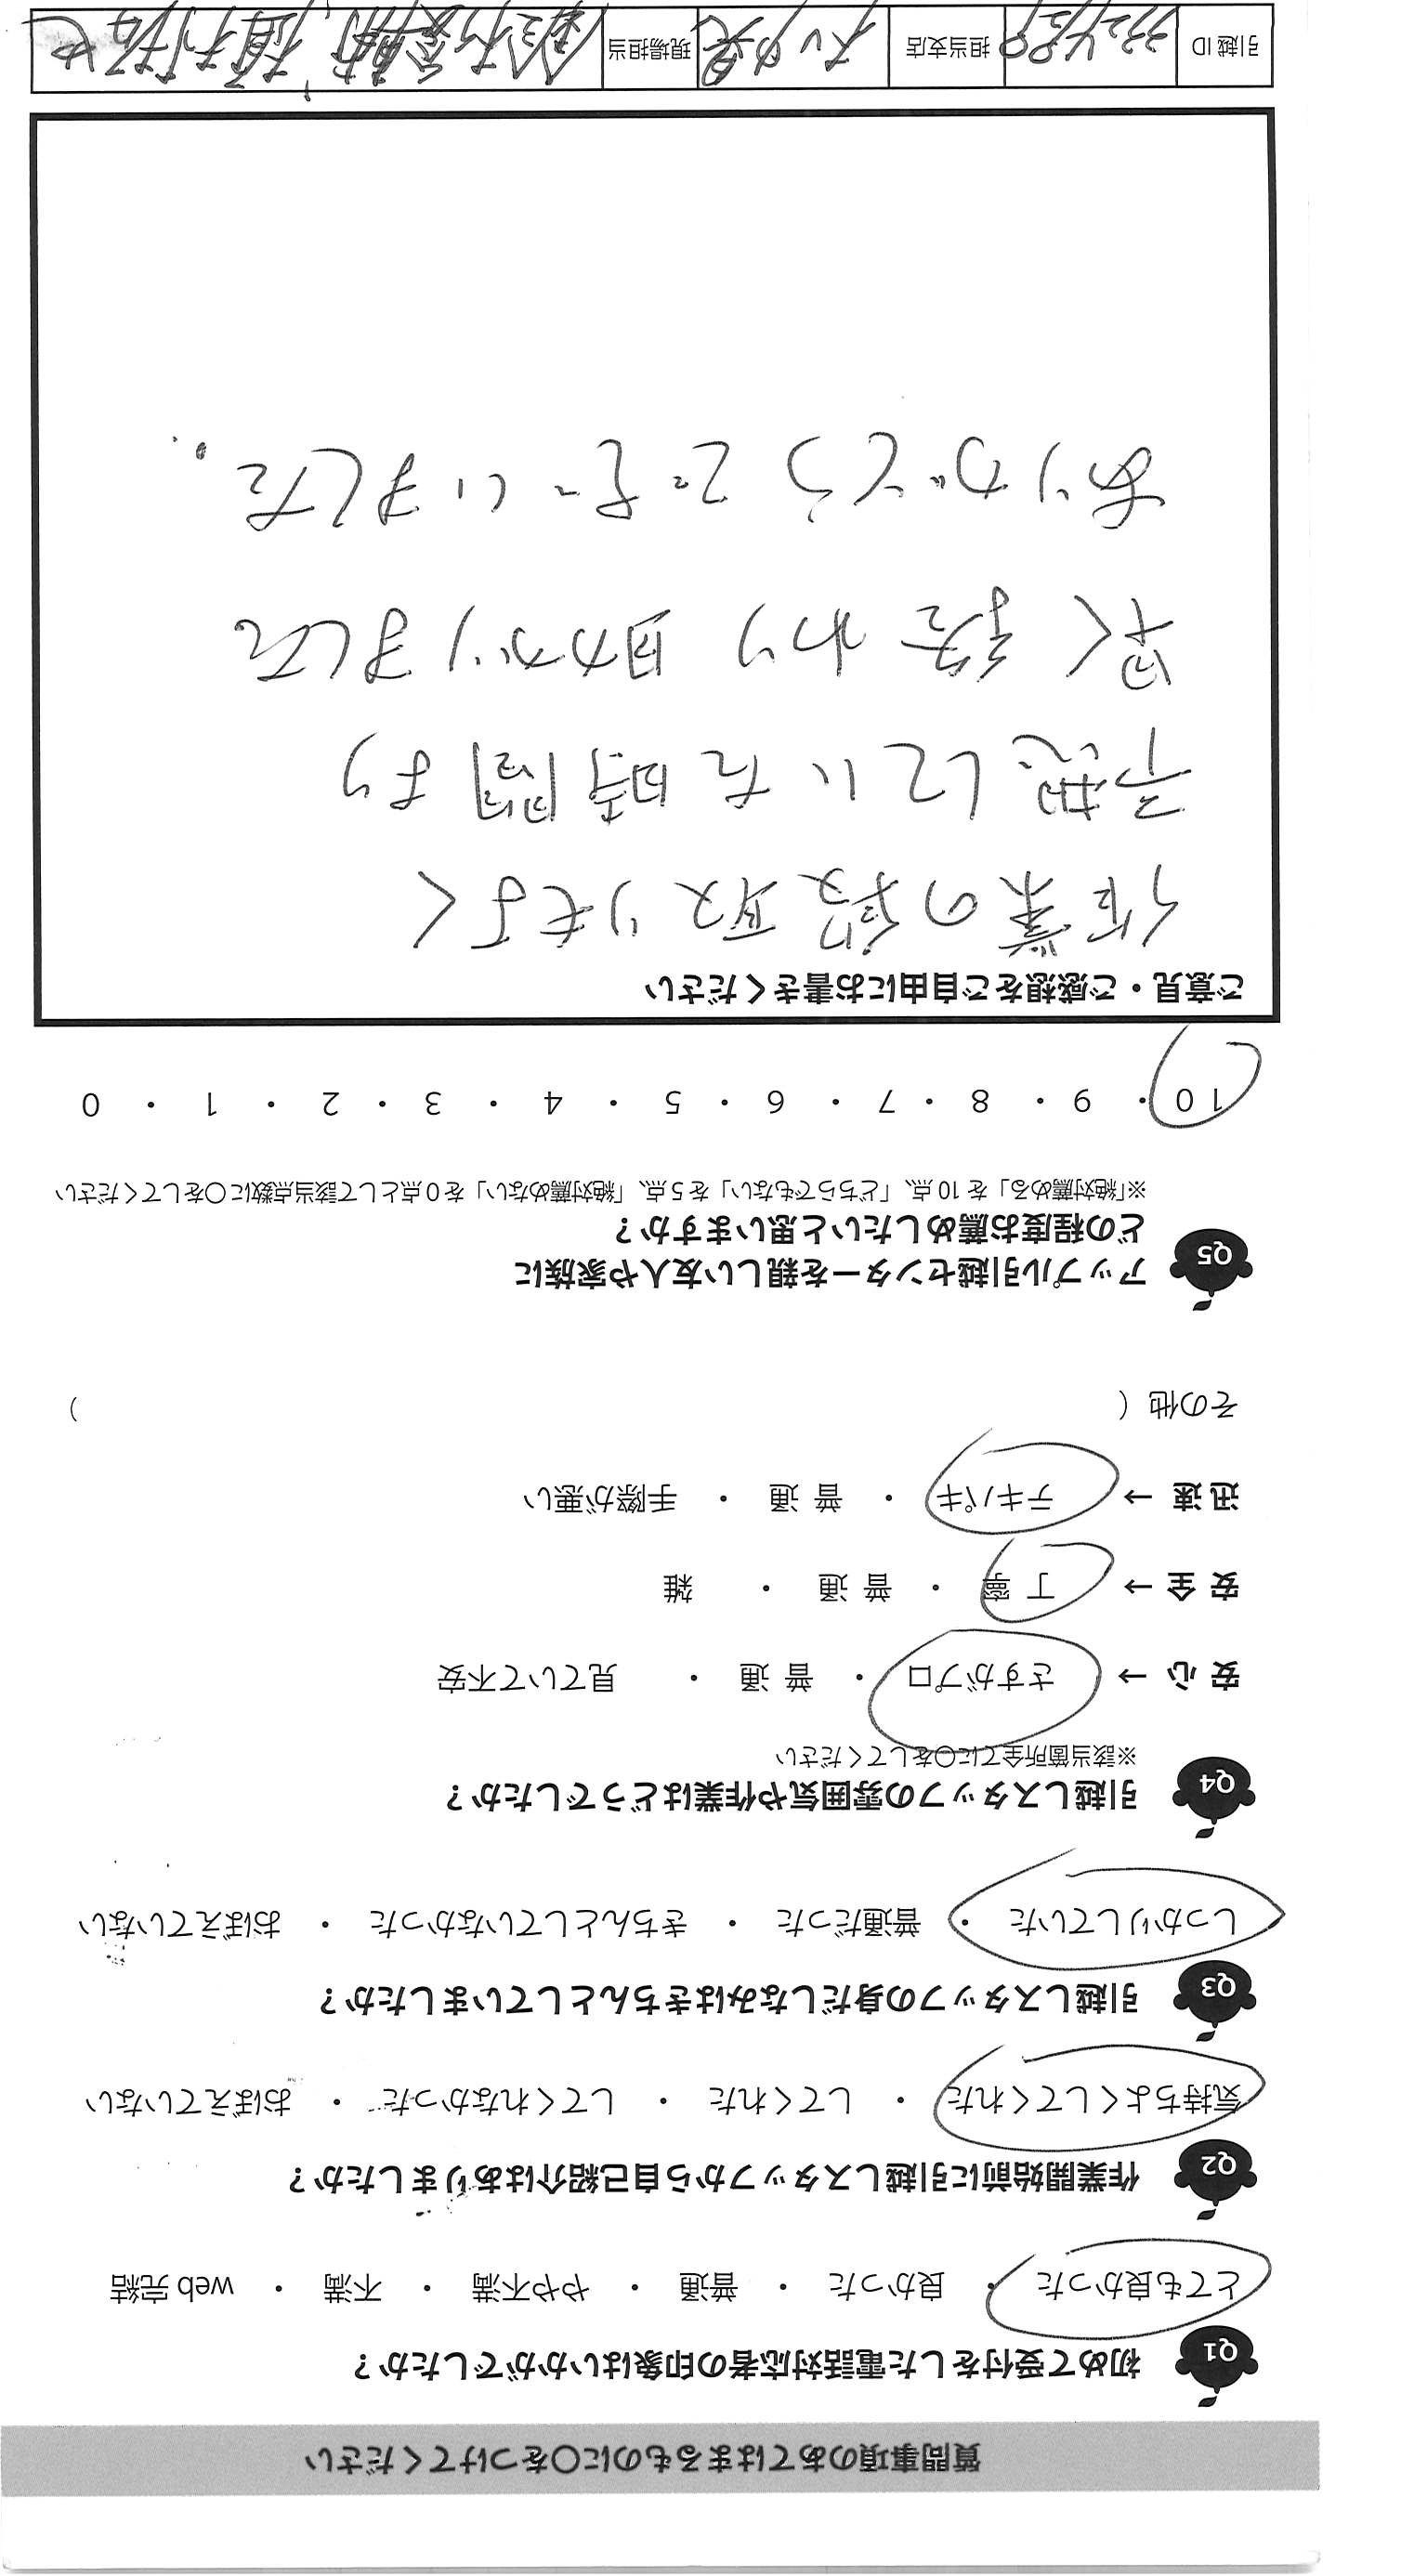 質問事項のあてはまるものに〇をつけてください
Q1 初めて受付をした電話対応者の印象はいかがでしたか？
とても良かった ・ 良かった ・ 普通 ・ やや不満 ・ 不満 ・ web 完結
Q2 作業開始前に引越しスタッフから自己紹介はありましたか？
気持ちよくしてくれた ・ してくれた ・ してくれなかった ・ おぼえていない
Q3 引越しスタッフの身だしなみはきちんとしていましたか？
しっかりしていた ・ 普通だった ・ きちんとしていなかった ・ おぼえていない
Q4 引越しスタッフの雰囲気や作業はどうでしたか？
※該当箇所全てに〇をしてください
安 心 → さすがプロ ・ 普 通 ・ 見ていて不安
安 全 → 丁 寧 ・ 普 通 ・ 雑
迅 速 → テキパキ ・ 普 通 ・ 手際が悪い
その他（ ）
Q5 アップル引越センターを親しい友人や家族に
どの程度お薦めしたいと思いますか？
※「絶対薦める」を 10 点、「どちらでもない」を 5 点、「絶対薦めない」を 0 点として該当点数に〇をしてください
10 ・ 9 ・ 8 ・ 7 ・ 6 ・ 5 ・ 4 ・ 3 ・ 2 ・ 1 ・ 0
ご意見・ご感想をご自由にお書きください
作業の段取りもよく
予想していた時間より
早く終わり 助かりました
ありがとうございました。
引越 ID 担当支店 現場担当